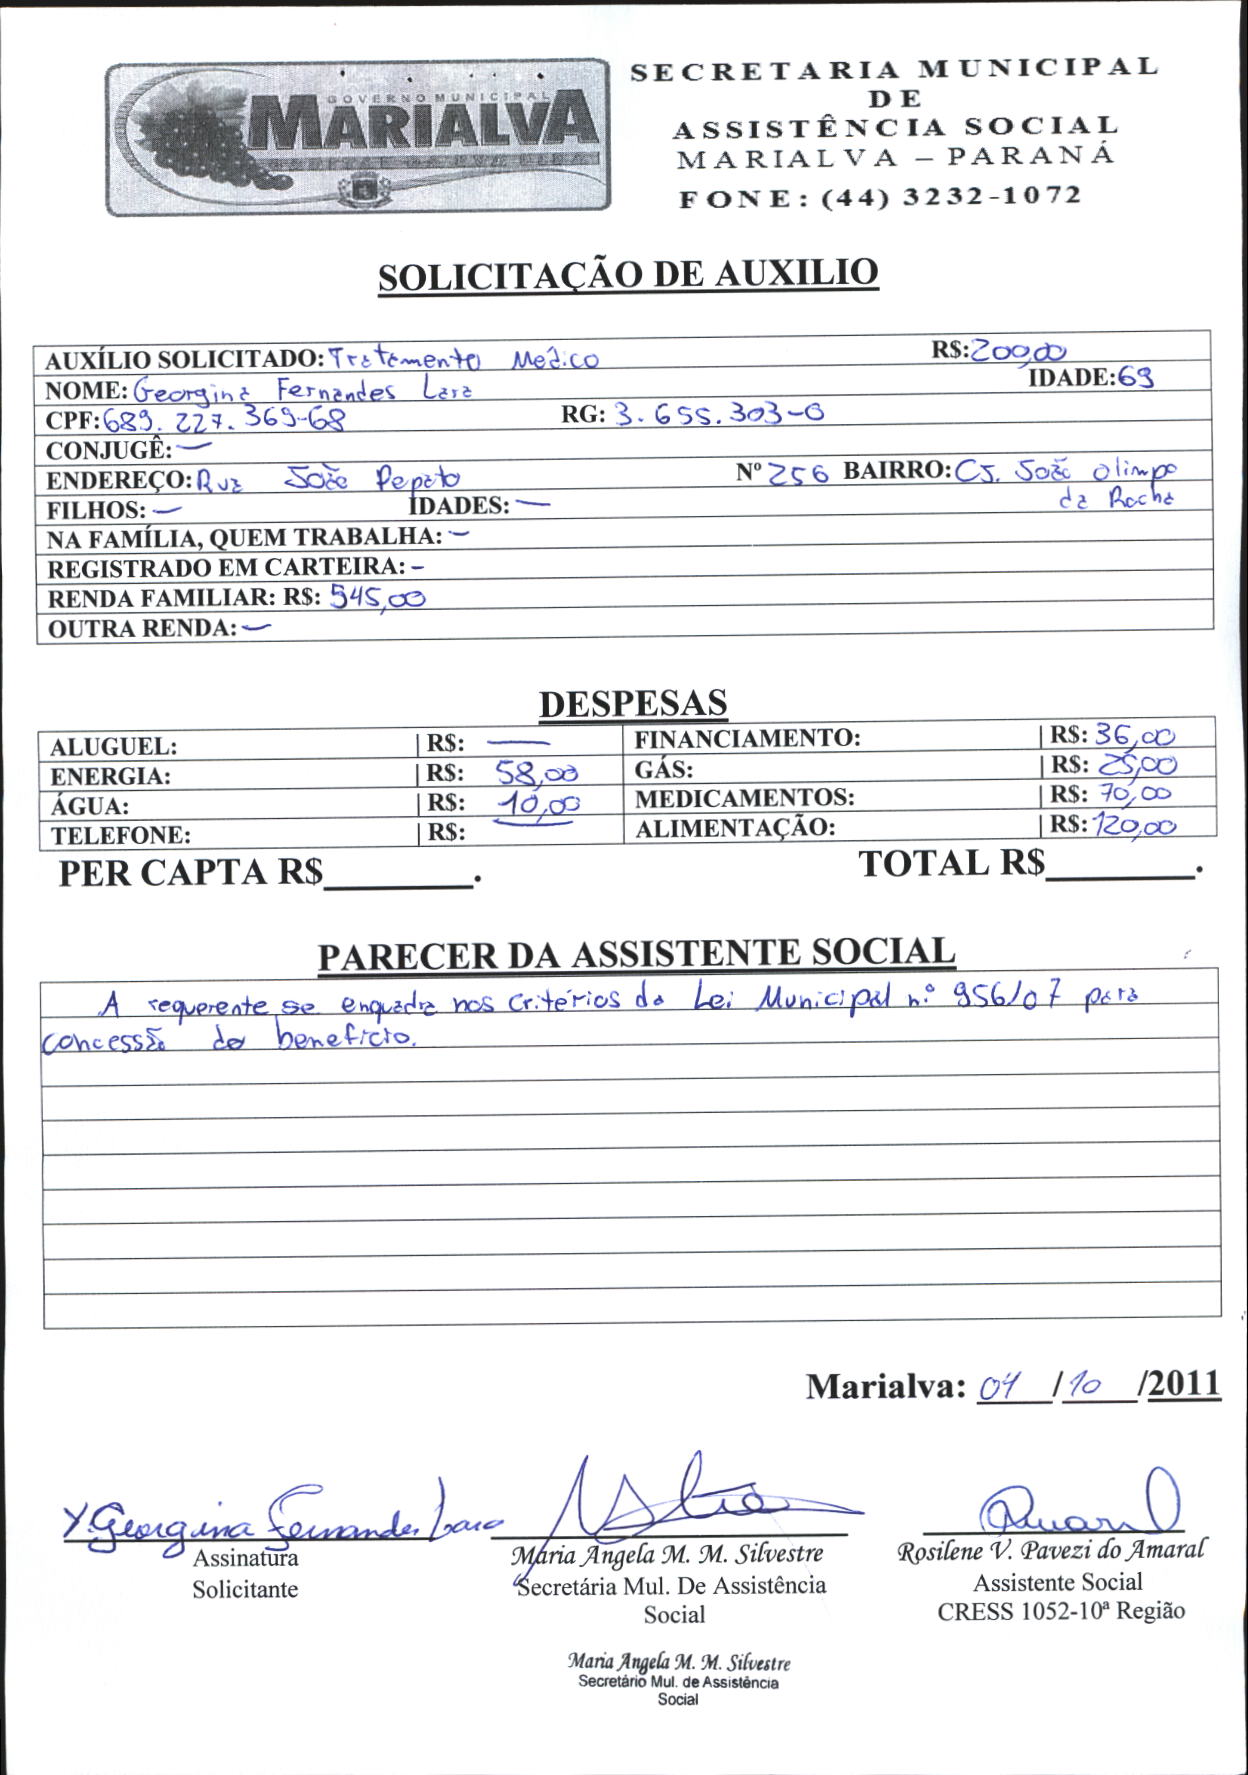 GOVERNO MUNICIPAL
MARIALVA
SECRETARIA MUNICIPAL
DE
ASSISTÊNCIA SOCIAL
MARIALVA – PARANÁ
FONE: (44) 3232-1072
SOLICITAÇÃO DE AUXILIO
AUXÍLIO SOLICITADO: Tratamento Médico R$: 200,00
NOME: Georgina Fernandes Lara IDADE: 69
CPF: 689.227.369-68 RG: 3.655.303-0
CONJUGÊ: —
ENDEREÇO: Rua João Pepato Nº 256 BAIRRO: CJ. João Olimpo
da Rocha
FILHOS: — IDADES: —
NA FAMÍLIA, QUEM TRABALHA: –
REGISTRADO EM CARTEIRA: -
RENDA FAMILIAR: R$: 545,00
OUTRA RENDA: —
DESPESAS
ALUGUEL: | R$: — FINANCIAMENTO: | R$: 36,00
ENERGIA: | R$: 58,00 GÁS: | R$: 25,00
ÁGUA: | R$: 10,00 MEDICAMENTOS: | R$: 70,00
TELEFONE: | R$: — ALIMENTAÇÃO: | R$: 120,00
PER CAPTA R$________. TOTAL R$________.
PARECER DA ASSISTENTE SOCIAL
A requerente se enquadra nos critérios da Lei Municipal n.º 956/07 para
concessão do benefício.
Marialva: 04 /10 /2011
Georgina Fernandes Lara
Assinatura
Solicitante
Maria Angela M. M. Silvestre
Secretária Mul. De Assistência
Social
Rosilene V. Pavezi do Amaral
Assistente Social
CRESS 1052-10ª Região
Maria Angela M. M. Silvestre
Secretário Mul. de Assistência
Social